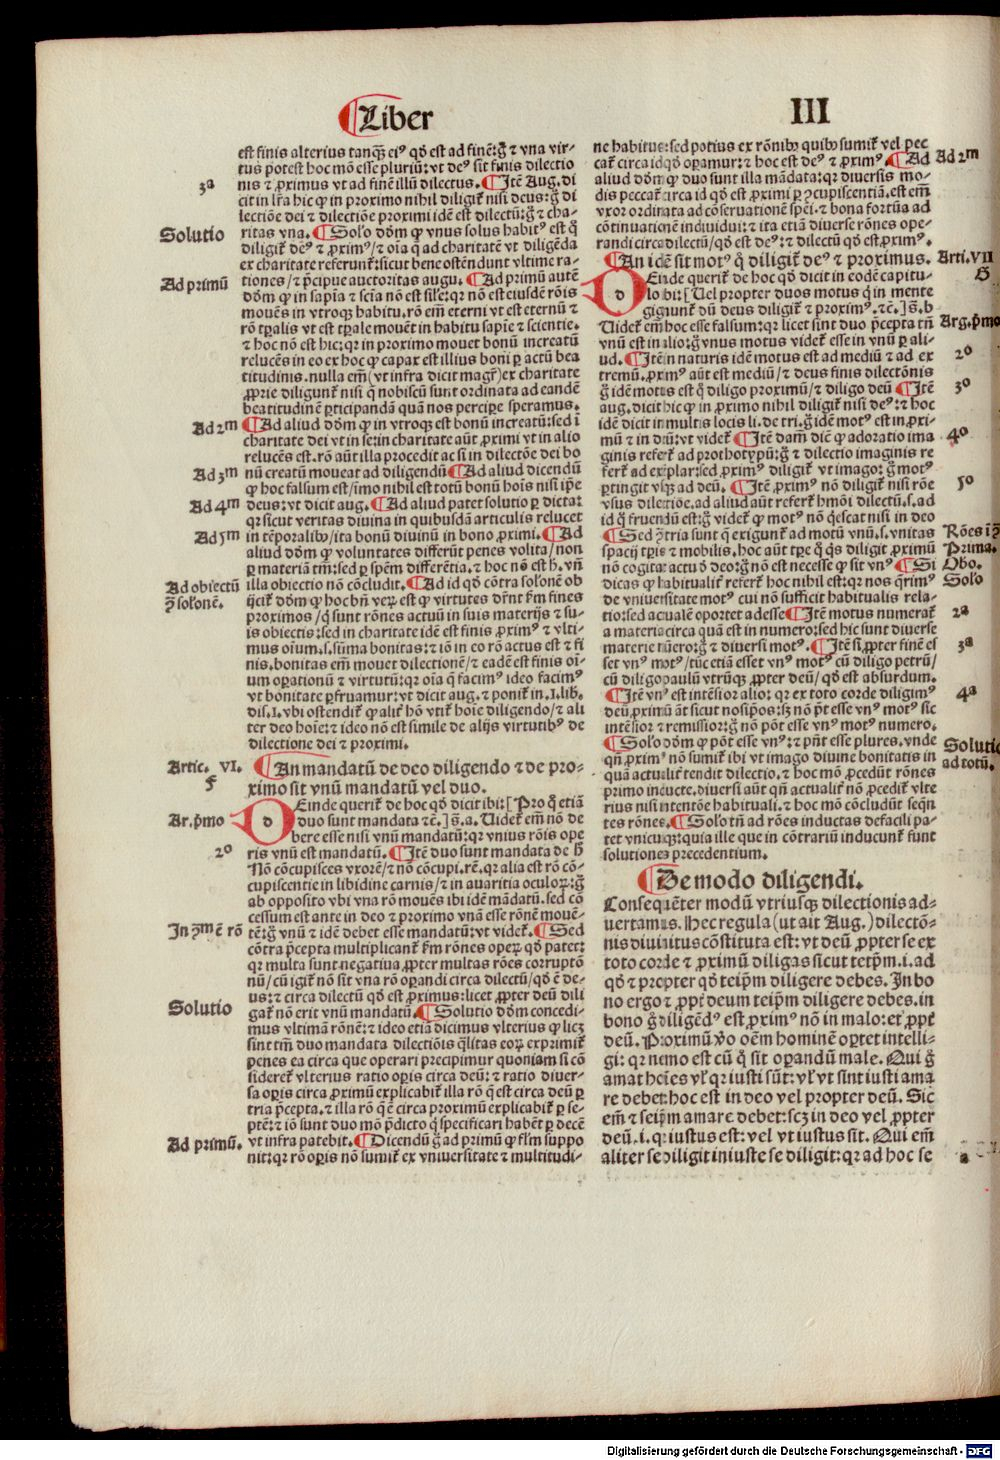 Liber
III
est finis alterius tanqȝ eiꝰ qd̓ est ad finē: g̊ ⁊ vna vir-
tus pōtest hoc mō esse pluriū: vt deꝰ sit finis dilectio
nis ⁊ ꝓximus vt ad finē illū dilectus. ¶ Itē Aug. di
cit in lr̄a hic ꝙ in proximo nihil diligit̄ nisi deus: g̊ di
lectiōe dei ⁊ dilectiōe proximi idē est dilectū: g̊ ⁊ cha-
ritas vna. ¶ Solo dōm ꝙ vnus solus habitꝰ est q̊
diligit̄ deꝰ ⁊ ꝓximꝰ/ ⁊ oīa q̄ ad charitatē vt diligēda
ex charitate referunt̄: sicut bene ostēdunt vltime ra-
tiones/ ⁊ p̄cipue auctoritas augu. ¶ Ad primū autē
dōm ꝙ in sapīa ⁊ scīa nō est sil̄e: qꝛ nō est eiusdē rōis
mouēs in vtroqȝ habitu. rō em̄ eterni vt est eternū ⁊
rō tꝑalis vt est tꝑale mouēt in habitu sapīe ⁊ scientie.
⁊ hoc nō est hic: qꝛ in proximo mouet bonū increatū
relucēs in eo ex hoc ꝙ capax est illius boni ꝑ actū bea
titudinis. nulla em̄ (vt infra dicit magr̄) ex charitate
ꝓprie diligunt̄ nisi q̄ nobiscū sunt ordinata ad eandē
beatitudinē ꝑticipandā quā nos percipe speramus.
¶ Ad aliud dōm ꝙ in vtroqȝ est bonū increatū: sed ī
charitate dei vt in se: in charitate aūt ꝓximi vt in alio
relucēs est. rō aūt illa procedit ac si in dilectōe dei bo
nū creatū moueat ad diligendū ¶ Ad aliud dicendū
ꝙ hoc falsum est/ imo nihil est totū bonū hoīs nisi ip̄e
deus: vt dicit aug. ¶ Ad aliud patet solutio ꝑ dicta:
qꝛ sicut veritas diuina in quibusdā articulis relucet
in tēporalibꝰ/ ita bonū diuinū in bono ꝓximi. ¶ Ad
aliud dōm ꝙ voluntates differūt penes volita/ non
ꝑ materiā tm̄: sed ꝑ spēm differētia. ⁊ hoc nō est h̄. vn̄
illa obiectio nō cōcludit. ¶ Ad id qd̓ cōtra solonē ob
ijcit̄ dōm ꝙ hoc bn̄ veꝝ est ꝙ virtutes dr̄nt fm̄ fines
proximos/ q̄ sunt rōnes actuū in suis materijs ⁊ su-
is obiectis: sed in charitate idē est finis ꝓximꝰ ⁊ vlti-
mus oīum. s. sūma bonitas: ⁊ iō in eo rō actus est ⁊ fi
nis. bonitas em̄ mouet dilectionē/ ⁊ eadē est finis oī-
um oꝑationū ⁊ virtutū: qꝛ oīa q̄ facimꝰ ideo facimꝰ
vt bonitate ꝑfruamur: vt dicit aug. ⁊ ponit̄ in .I. lib.
dis. I. vbi ostendit̄ ꝙ alit̄ hō vtit̄ hoīe diligendo/ ⁊ ali
ter deo hoīe: ⁊ ideo nō est simile de alijs virtutibꝰ de
dilectione dei ⁊ proximi.
¶ An mandatū de deo diligendo ⁊ de pro-
ximo sit vnū mandatū vel duo.
Deinde querit̄ de hoc qd̓ dicit ibi: [Pro q̊ etiā
duo sunt mandata ⁊c̄.] §. a. Uidet̄ em̄ nō de
bere esse nisi vnū mandatū: qꝛ vnius rōis ope
ris vnū est mandatū. ¶ Itē duo sunt mandata de h̄
Nō cōcupisces vxorē/ ⁊ nō cōcupi. rē. qꝛ alia est rō cō-
cupiscentie in libidine carnis/ ⁊ in auaritia oculoꝝ: g̊
ab opposito vbi vna rō mouēs ibi idē mādatū. sed cō
cessum est ante in deo ⁊ proximo vnā esse rōnē mouē-
tē: g̊ vnū ⁊ idē debet esse mandatū: vt videt̄. ¶ Sed
cōtra p̄cepta multiplicant̄ fm̄ rōnes operꝝ qd̓ patet:
qꝛ multa sunt negatiua ꝓpter multas rōes corruptō
nū/ cū igit̄ nō sit vna rō oꝑandi circa dilectū/ qd̓ ē de-
us: ⁊ circa dilectū qd̓ est ꝓximus: licet ꝓpter deū dili
gat̄ nō erit vnū mandatū. ¶ Solutio dōm concedi-
mus vltimā rōnē: ⁊ ideo etiā dicimus vlterius ꝙ licȝ
sint tm̄ duo mandata dilectiōis q̄litas eoꝝ exprimit̄
penes ea circa que operari precipimur quoniam si cō
sideret̄ vlterius ratio oꝑis circa deū: ⁊ ratio diuer-
sa oꝑis circa ꝓximū explicabit̄ illa rō q̄ est circa deū ꝑ
tria p̄cepta. ⁊ illa rō q̄ ē circa proximū explicabit̄ ꝑ se-
ptē: ⁊ iō sunt duo mō p̄dicto q̄ specificari habēt ꝑ decē
vt infra patebit. ¶ Dicendū g̊ ad primū ꝙ fl̄m suppo
nit: qꝛ rō oꝑis nō sumit̄ ex vniuersitate ⁊ multitudi-
3a
Solutio
Ad primū
Ad 2m
Ad 3m
Ad 4m
Ad 5m
Ad obiectū
ↄ̄ solonē.
Artic. VI.
Ar. p̄mo
20
In ↄ̄m ē rō
Solutio
Ad primū.
ne habitus: sed potius ex rōnibꝰ quibꝰ sumit̄ vel pec
cat̄ circa id qd̓ oꝑamur: ⁊ hoc est deꝰ ⁊ ꝓximꝰ. ¶ Ad
aliud dōm ꝙ duo sunt illa mādata: qꝛ diuersis mo-
dis peccat̄ circa id qd̓ est ꝓximi ꝑ ↄcupiscentiā. est em̄
vxor ordinata ad cōseruationē spēi. ⁊ bona fortūa ad
cōtinuationē indiuidui: ⁊ ita etiā diuerse rōnes ope-
randi circa dilectū/ qd̓ est deꝰ: ⁊ dilectū qd̓ est ꝓximꝰ.
¶ An idē sit motꝰ q̊ diligit̄ deꝰ ⁊ proximus.
Deinde querit̄ de hoc qd̓ dicit in eodē capitu-
lo ibi: [Uel propter duos motus q̄ in mente
gigiunt̄ dū deus diligit̄ ⁊ proximꝰ. ⁊c̄.] §. b
Uidet̄ em̄ hoc esse falsum: qꝛ licet sint duo p̄cepta tn̄
vnū est in alio: g̊ vnus motus videt̄ esse in vnū ꝑ ali-
ud. ¶ Itē in naturis idē motus est ad mediū ⁊ ad ex
tremū. ꝓximꝰ aūt est mediū/ ⁊ deus finis dilectōnis
g̊ idē motus est q̊ diligo proximū/ ⁊ diligo deū ¶ Itē
aug. dicit hic ꝙ in ꝓximo nihil diligit̄ nisi deꝰ: ⁊ hoc
idē dicit in multis locis li. de tri. g̊ idē motꝰ est in ꝓxi-
mū ⁊ in deū: vt videt̄ ¶ Itē dam̄. diē ꝙ adoratio ima
ginis refert̄ ad prothotypū: g̊ ⁊ dilectio imaginis re
fert̄ ad exp̄lar: sed ꝓximꝰ diligit̄ vt imago: g̊ motꝰ
ꝑtingit vsqȝ ad deū. ¶ Itē ꝓximꝰ nō diligit̄ nisi rōe
vsus dilectiōe. ad aliud aūt refert̄ hmōi dilectū. s. ad
id q̊ fruendū est: g̊ videt̄ ꝙ motꝰ nō q̄escat nisi in deo
¶ Sed ↄ̄tria sunt q̄ exigunt̄ ad motū vnū. s. vnitas
spacij tꝑis ⁊ mobilis. hoc aūt tꝑe q̊ q̄s diligit ꝓximū
nō cogitat actu d̓ deo: g̊ nō est necesse ꝙ sit vnꝰ ¶ Si
dicas ꝙ habitualit̄ refert̄ hoc nihil est: qꝛ nos q̄rimꝰ
de vniuersitate motꝰ cui nō sufficit habitualis rela-
tio: sed actualē oportet adesse ¶ Itē motus numerat̄
a materia circa quā est in numero: sed hic sunt diuerse
materie nūero: g̊ ⁊ diuersi motꝰ. ¶ Itē si ꝓpter finē es
set vnꝰ motꝰ/ tūc etiā esset vnꝰ motꝰ cū diligo petrū/
cū diligo paulū vtrūqȝ ꝓpter deū/ qd̓ est absurdum.
¶ Itē vnꝰ est intēsior alio: qꝛ ex toto corde diligimꝰ
deū ꝓximū aūt sicut nosip̄os: sȝ nō pōt esse vnꝰ motꝰ sic
intēsior ⁊ remissior: g̊ nō pōt esse vnꝰ motꝰ numero.
¶ Solo dōm ꝙ pōt esse vnꝰ: ⁊ pn̄t esse plures. vnde
qn̄ ꝓximꝰ nō sumit̄ ibi vt imago diuine bonitatis in
quā actualit̄ tendit dilectio. ⁊ hoc mō ꝓcedūt rōnes
primo inducte. diuersi aūt qn̄ actualit̄ nō ꝓcedit̄ vlte
rius nisi intentōe habituali. ⁊ hoc mō cōcludūt seq̄n
tes rōnes. ¶ Solo tn̄ ad rōes inductas de facili pa-
tet vnicuiqȝ: quia ille que in cōtrariū inducunt̄ sunt
solutiones precedentium.
¶ De modo diligendi.
Consequēter modū vtriusqȝ dilectionis ad-
uertamus. Hec regula (ut ait Aug.) dilectō-
nis diuinitus cōstituta est: vt deū ꝓpter se ex
toto corde ⁊ ꝓximū diligas sicut teip̄m. i. ad
qd̓ ⁊ propter qd̓ teip̄m diligere debes. In bo
no ergo ⁊ ꝓpt̄ deum teip̄m diligere debes. in
bono g̊ diligēdꝰ est ꝓximꝰ nō in malo: et ꝓpt̄
deū. Proximū v̊o oēm hominē oꝑtet intelli-
gi: qꝛ nemo est cū q̊ sit oꝑandū male. Qui g̊
amat hoīes vl̓ qꝛ iusti sūt: vl̓ vt sint iusti ama
re debet: hoc est in deo vel propter deū. Sic
em̄ ⁊ seip̄m amare debet: scȝ in deo vel ꝓpter
deū. i. qꝛ iustus est: vel vt iustus sit. Qui em̄
aliter se diligit iniuste se diligit: qꝛ ad hoc se
Ad 2m
Arti. VII
Arg. p̄mo
20
30
40
50
Prima.
Obo.
Solo
2a
3a
4a
Solutio
ad totū.
Digitalisierung gefördert durch die Deutsche Forschungsgemeinschaft - DFG